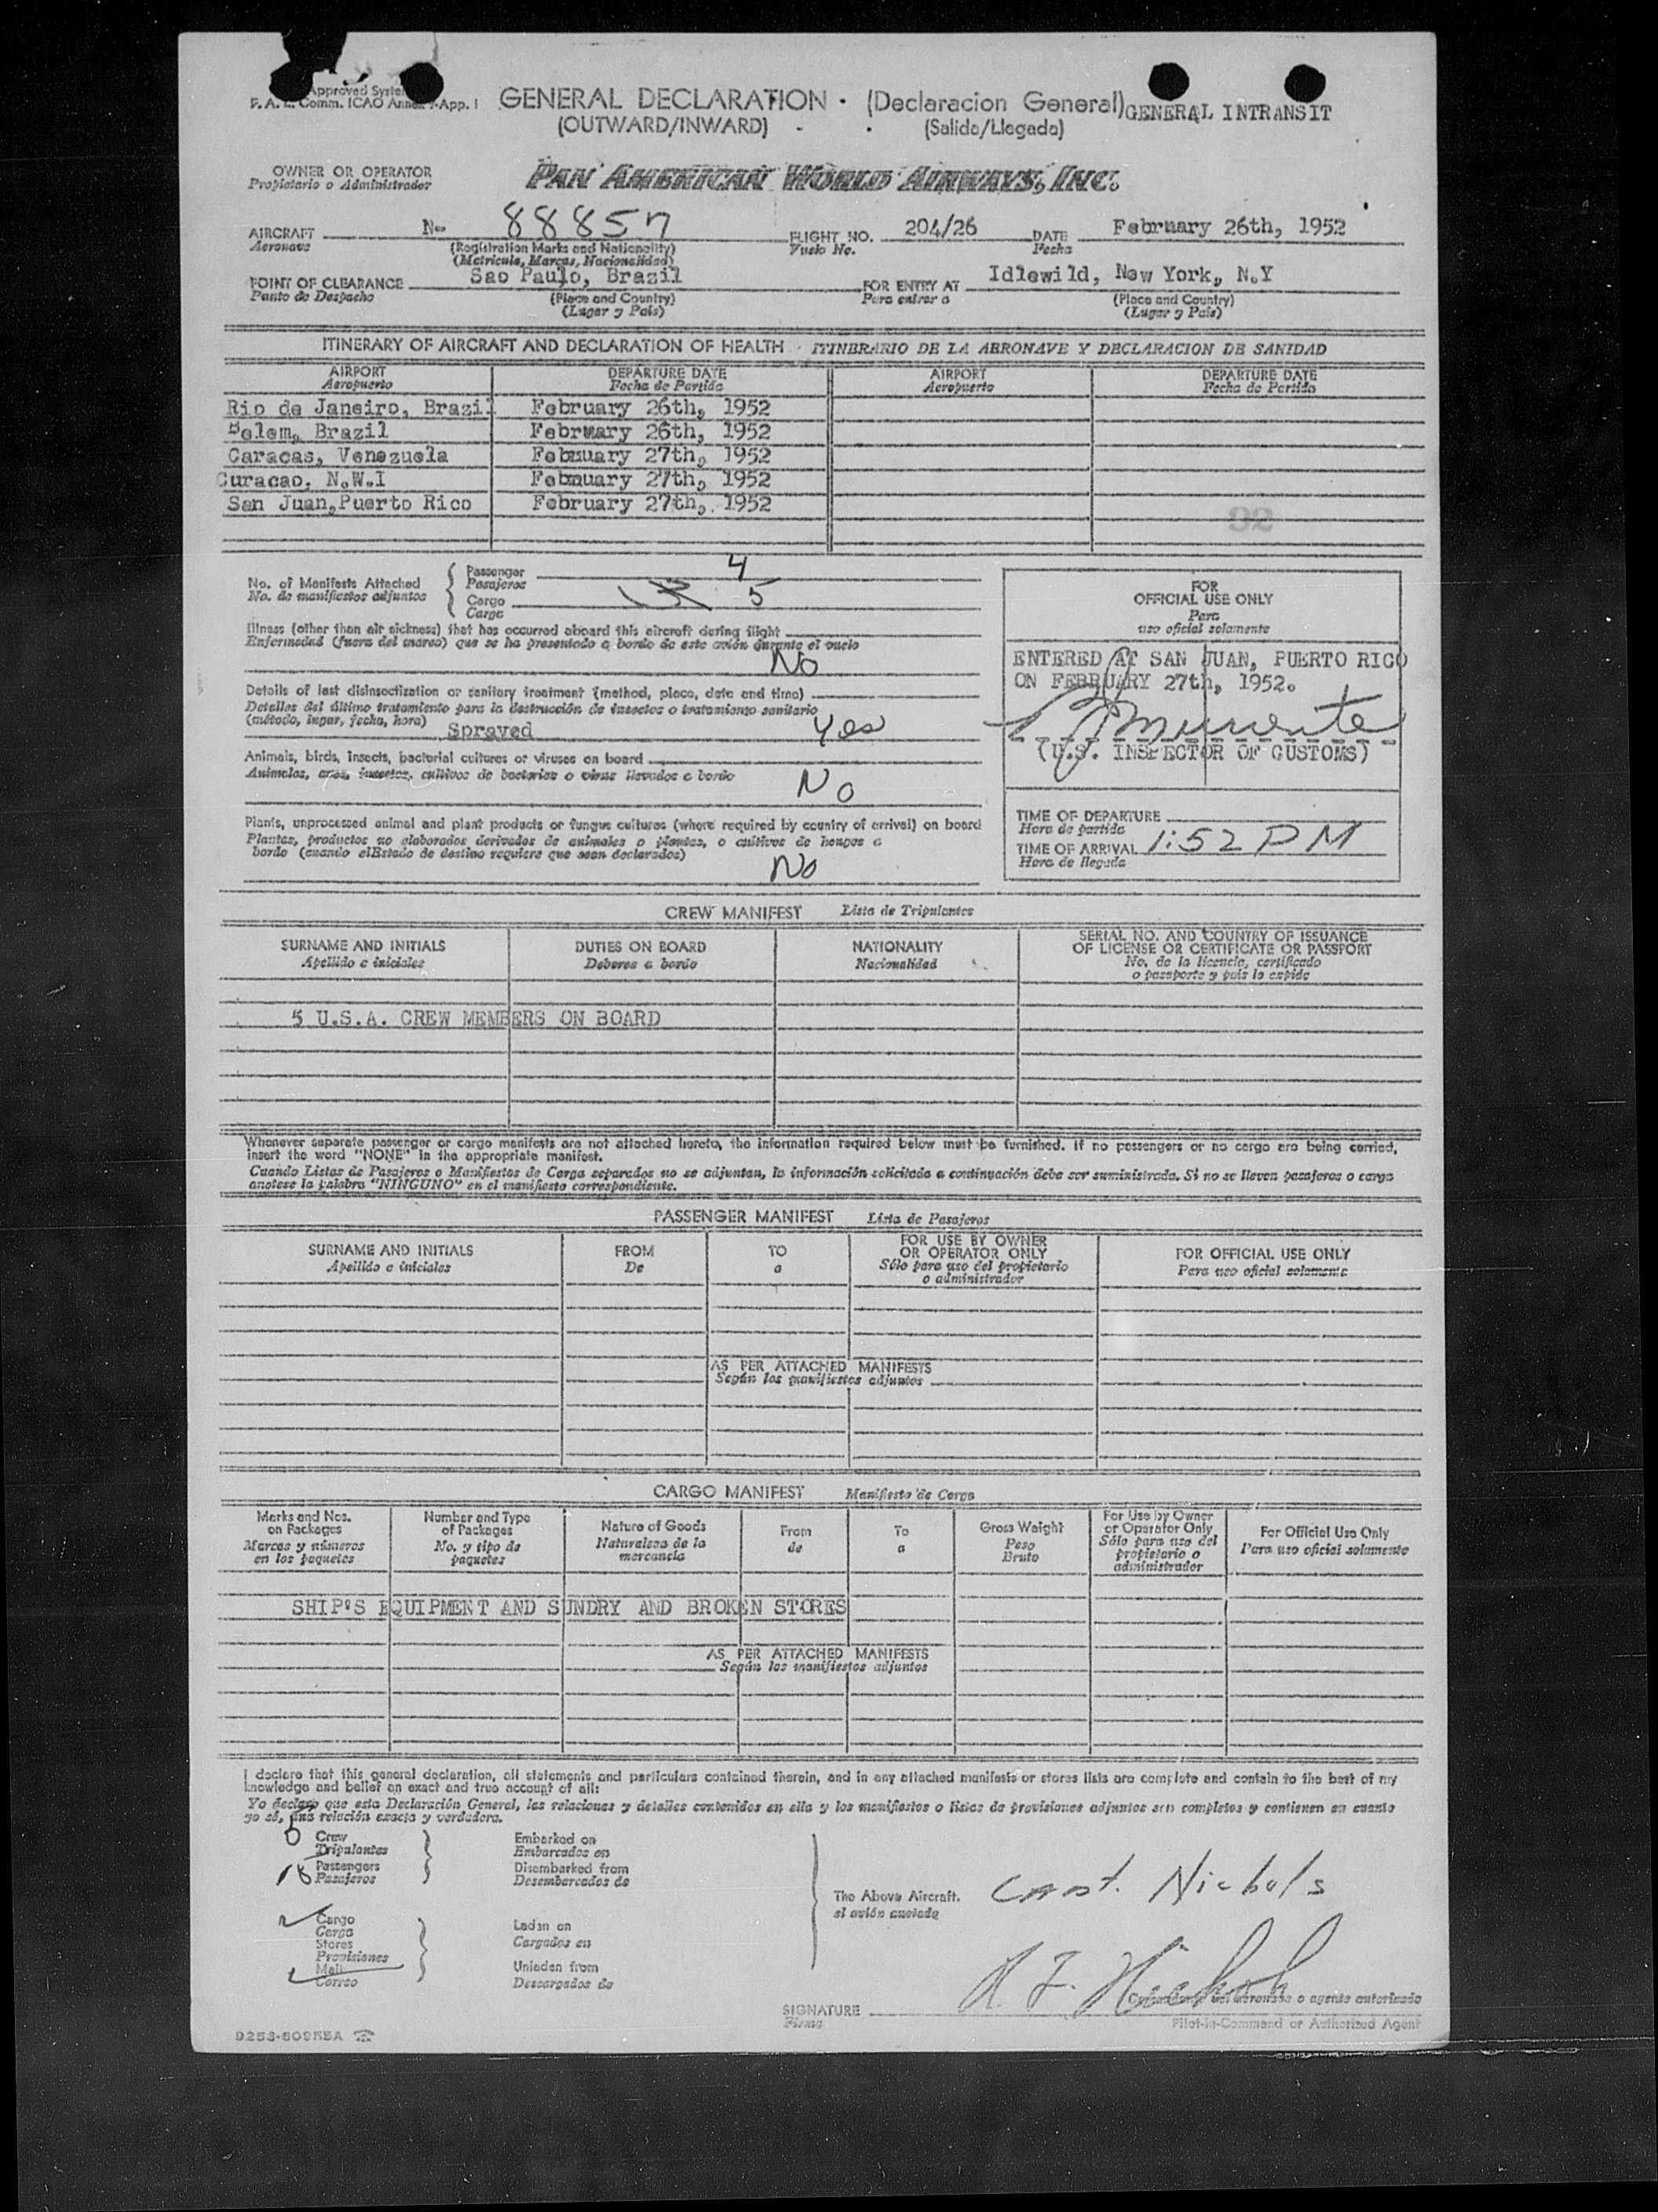 Approved System
F. A. L. Comm. ICAO Annex 9-App. I
GENERAL DECLARATION · (Declaracion General) GENERAL INTRANSIT
(OUTWARD/INWARD) (Salida/Llegada)
OWNER OR OPERATOR
Propietario o Administrador
PAN AMERICAN WORLD AIRWAYS, INC.
AIRCRAFT N- 88857 FLIGHT NO. 204/26 DATE February 26th, 1952
Aeronave (Registration Marks and Nationality) Vuelo No. Fecha
(Matricula, Marcas, Nacionalidad)
POINT OF CLEARANCE Sao Paulo, Brazil FOR ENTRY AT Idlewild, New York, N.Y
Punto de Despacho (Place and Country) Para entrar a (Place and Country)
(Lugar y País) (Lugar y País)
ITINERARY OF AIRCRAFT AND DECLARATION OF HEALTH · ITINERARIO DE LA AERONAVE Y DECLARACION DE SANIDAD
AIRPORT DEPARTURE DATE AIRPORT DEPARTURE DATE
Aeropuerto Fecha de Partida Aeropuerto Fecha de Partida
Rio de Janeiro, Brazil February 26th, 1952
Belem, Brazil February 26th, 1952
Caracas, Venezuela February 27th, 1952
Curacao, N.W.I February 27th, 1952
San Juan,Puerto Rico February 27th, 1952
92
No. of Manifests Attached
No. de manifiestos adjuntos
Passenger 4
Pasajeros
Cargo 5
Carga
Illness (other than air sickness) that has occurred aboard this aircraft during flight
Enfermedad (fuera del mareo) que se ha presentado a bordo de este avión durante el vuelo
No
Details of last disinsectization or sanitary treatment (method, place, date and time)
Detalles del último tratamiento para la destrucción de insectos o tratamiento sanitario
(método, lugar, fecha, hora) Sprayed Yes
Animals, birds, insects, bacterial cultures or viruses on board
Animales, aves, insectos, cultivos de bacterias o virus llevados a bordo
No
Plants, unprocessed animal and plant products or fungus cultures (where required by country of arrival) on board
Plantas, productos no elaborados derivados de animales o plantas, o cultivos de hongos a
bordo (cuando elEstado de destino requiere que sean declarados)
No
FOR
OFFICIAL USE ONLY
Para
uso oficial solamente
ENTERED AT SAN JUAN, PUERTO RICO
ON FEBRUARY 27th, 1952.
(U.S. INSPECTOR OF CUSTOMS)
TIME OF DEPARTURE
Hora de partida
TIME OF ARRIVAL 1:52 PM
Hora de llegada
CREW MANIFEST Lista de Tripulantes
SURNAME AND INITIALS DUTIES ON BOARD NATIONALITY SERIAL NO. AND COUNTRY OF ISSUANCE
Apellido e iniciales Deberes a bordo Nacionalidad OF LICENSE OR CERTIFICATE OR PASSPORT
No. de la licencia, certificado
o pasaporte y país lo expide
5 U.S.A. CREW MEMBERS ON BOARD
Whenever separate passenger or cargo manifests are not attached hereto, the information required below must be furnished. If no passengers or no cargo are being carried,
insert the word "NONE" in the appropriate manifest.
Cuando Listas de Pasajeros o Manifiestos de Carga separados no se adjuntan, la información solicitada a continuación debe ser suministrada. Si no se lleven pasajeros o carga
anotese la palabra "NINGUNO" en el manifiesto correspondiente.
PASSENGER MANIFEST Lista de Pasajeros
SURNAME AND INITIALS FROM TO FOR USE BY OWNER FOR OFFICIAL USE ONLY
Apellido e iniciales De a OR OPERATOR ONLY Para uso oficial solamente
Sólo para uso del propietario
o administrador
AS PER ATTACHED MANIFESTS
Según los manifiestos adjuntos
CARGO MANIFEST Manifiesto de Carga
Marks and Nos. on Packages
Marcas y números en los paquetes
Number and Type of Packages
No. y tipo de paquetes
Nature of Goods
Naturaleza de la mercancia
From
de
To
a
Gross Weight
Peso Bruto
For Use by Owner or Operator Only
Sólo para uso del propietario o administrador
For Official Use Only
Para uso oficial solamente
SHIP'S EQUIPMENT AND SUNDRY AND BROKEN STORES
AS PER ATTACHED MANIFESTS
Según los manifiestos adjuntos
I declare that this general declaration, all statements and particulars contained therein, and in any attached manifests or stores lists are complete and contain to the best of my
knowledge and belief an exact and true account of all:
Yo declaro que esta Declaración General, las relaciones y detalles contenidos en ella y los manifiestos o listas de provisiones adjuntos son completos y contienen en cuanto
yo sé, una relación exacta y verdadera.
5 Crew Embarked on
Tripulantes Embarcados en
18 Passengers Disembarked from
Pasajeros Desembarcados de
The Above Aircraft. Capt. Nichols
el avión anotado
Cargo Laden on
Carga Cargados en
Stores
Provisiones
Mail Unladen from
Correo Descargados de
SIGNATURE
Firma
o agente autorizado
Pilot-in-Command or Authorized Agent